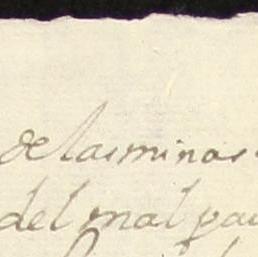 de las minas
del mal pa